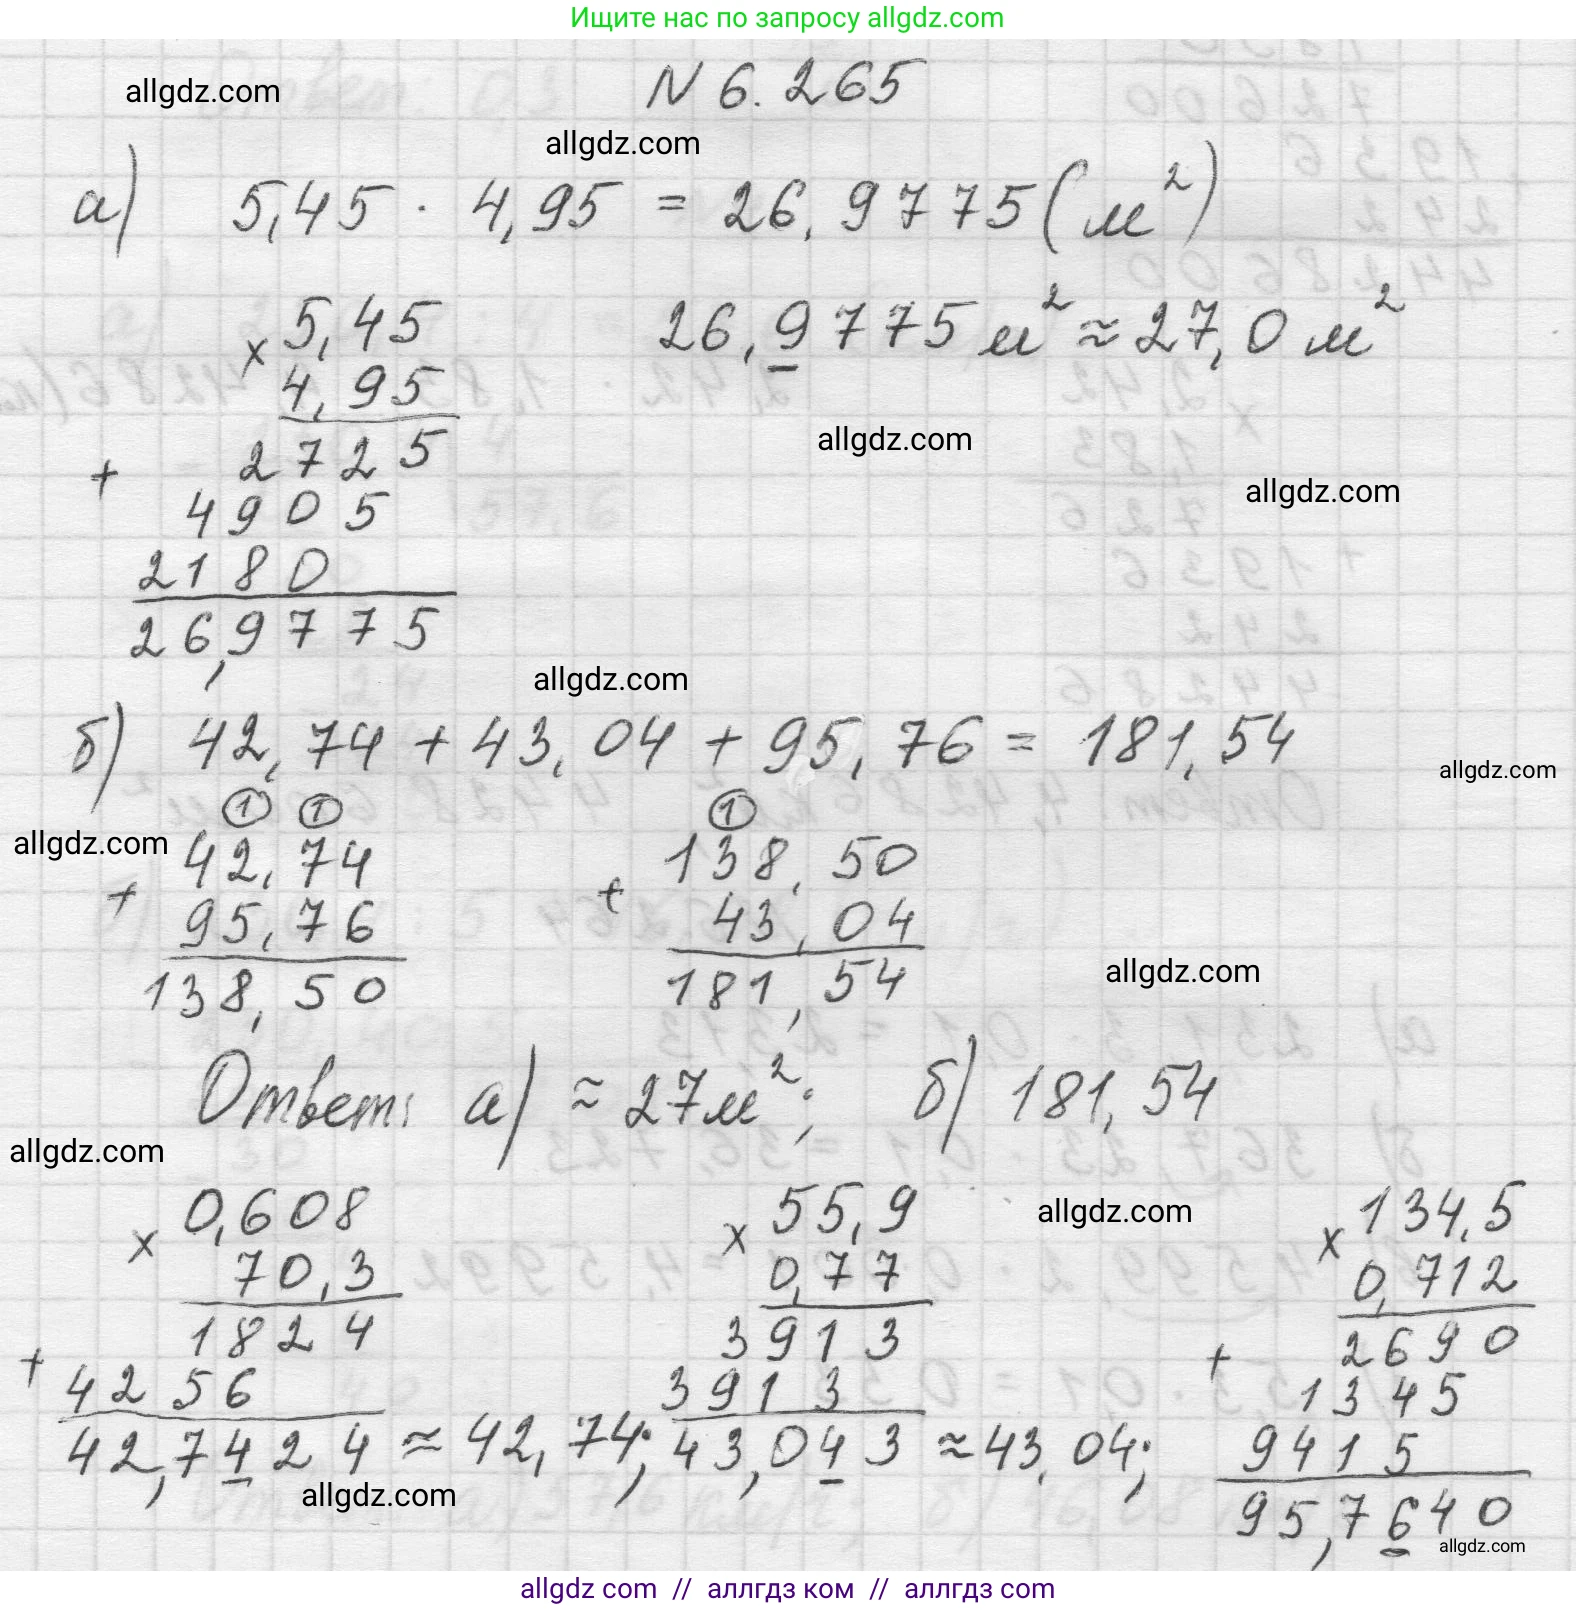 Ищите нас по запросу allgdz.com
allgdz.com
N 6.265
allgdz.com
а) 5,45 · 4,95 = 26,9775 (м²)
5,45
× 4,95
2725
+ 4905
2180
26,9775
26,9775 м² ≈ 27,0 м²
allgdz.com
allgdz.com
allgdz.com
б) 42,74 + 43,04 + 95,76 = 181,54
allgdz.com
allgdz.com
1 1
42,74
+ 95,76
138,50
1
138,50
+ 43,04
181,54
allgdz.com
Ответ: а) ≈ 27 м²; б) 181,54
allgdz.com
0,608
× 70,3
1824
+ 4256
42,7424 ≈ 42,74;
55,9
× 0,77
3913
3913
43,043 ≈ 43,04;
allgdz.com
134,5
× 0,712
2690
+ 1345
9415
95,7640
allgdz.com
allgdz.com
allgdz com // аллгдз ком // аллгдз.com